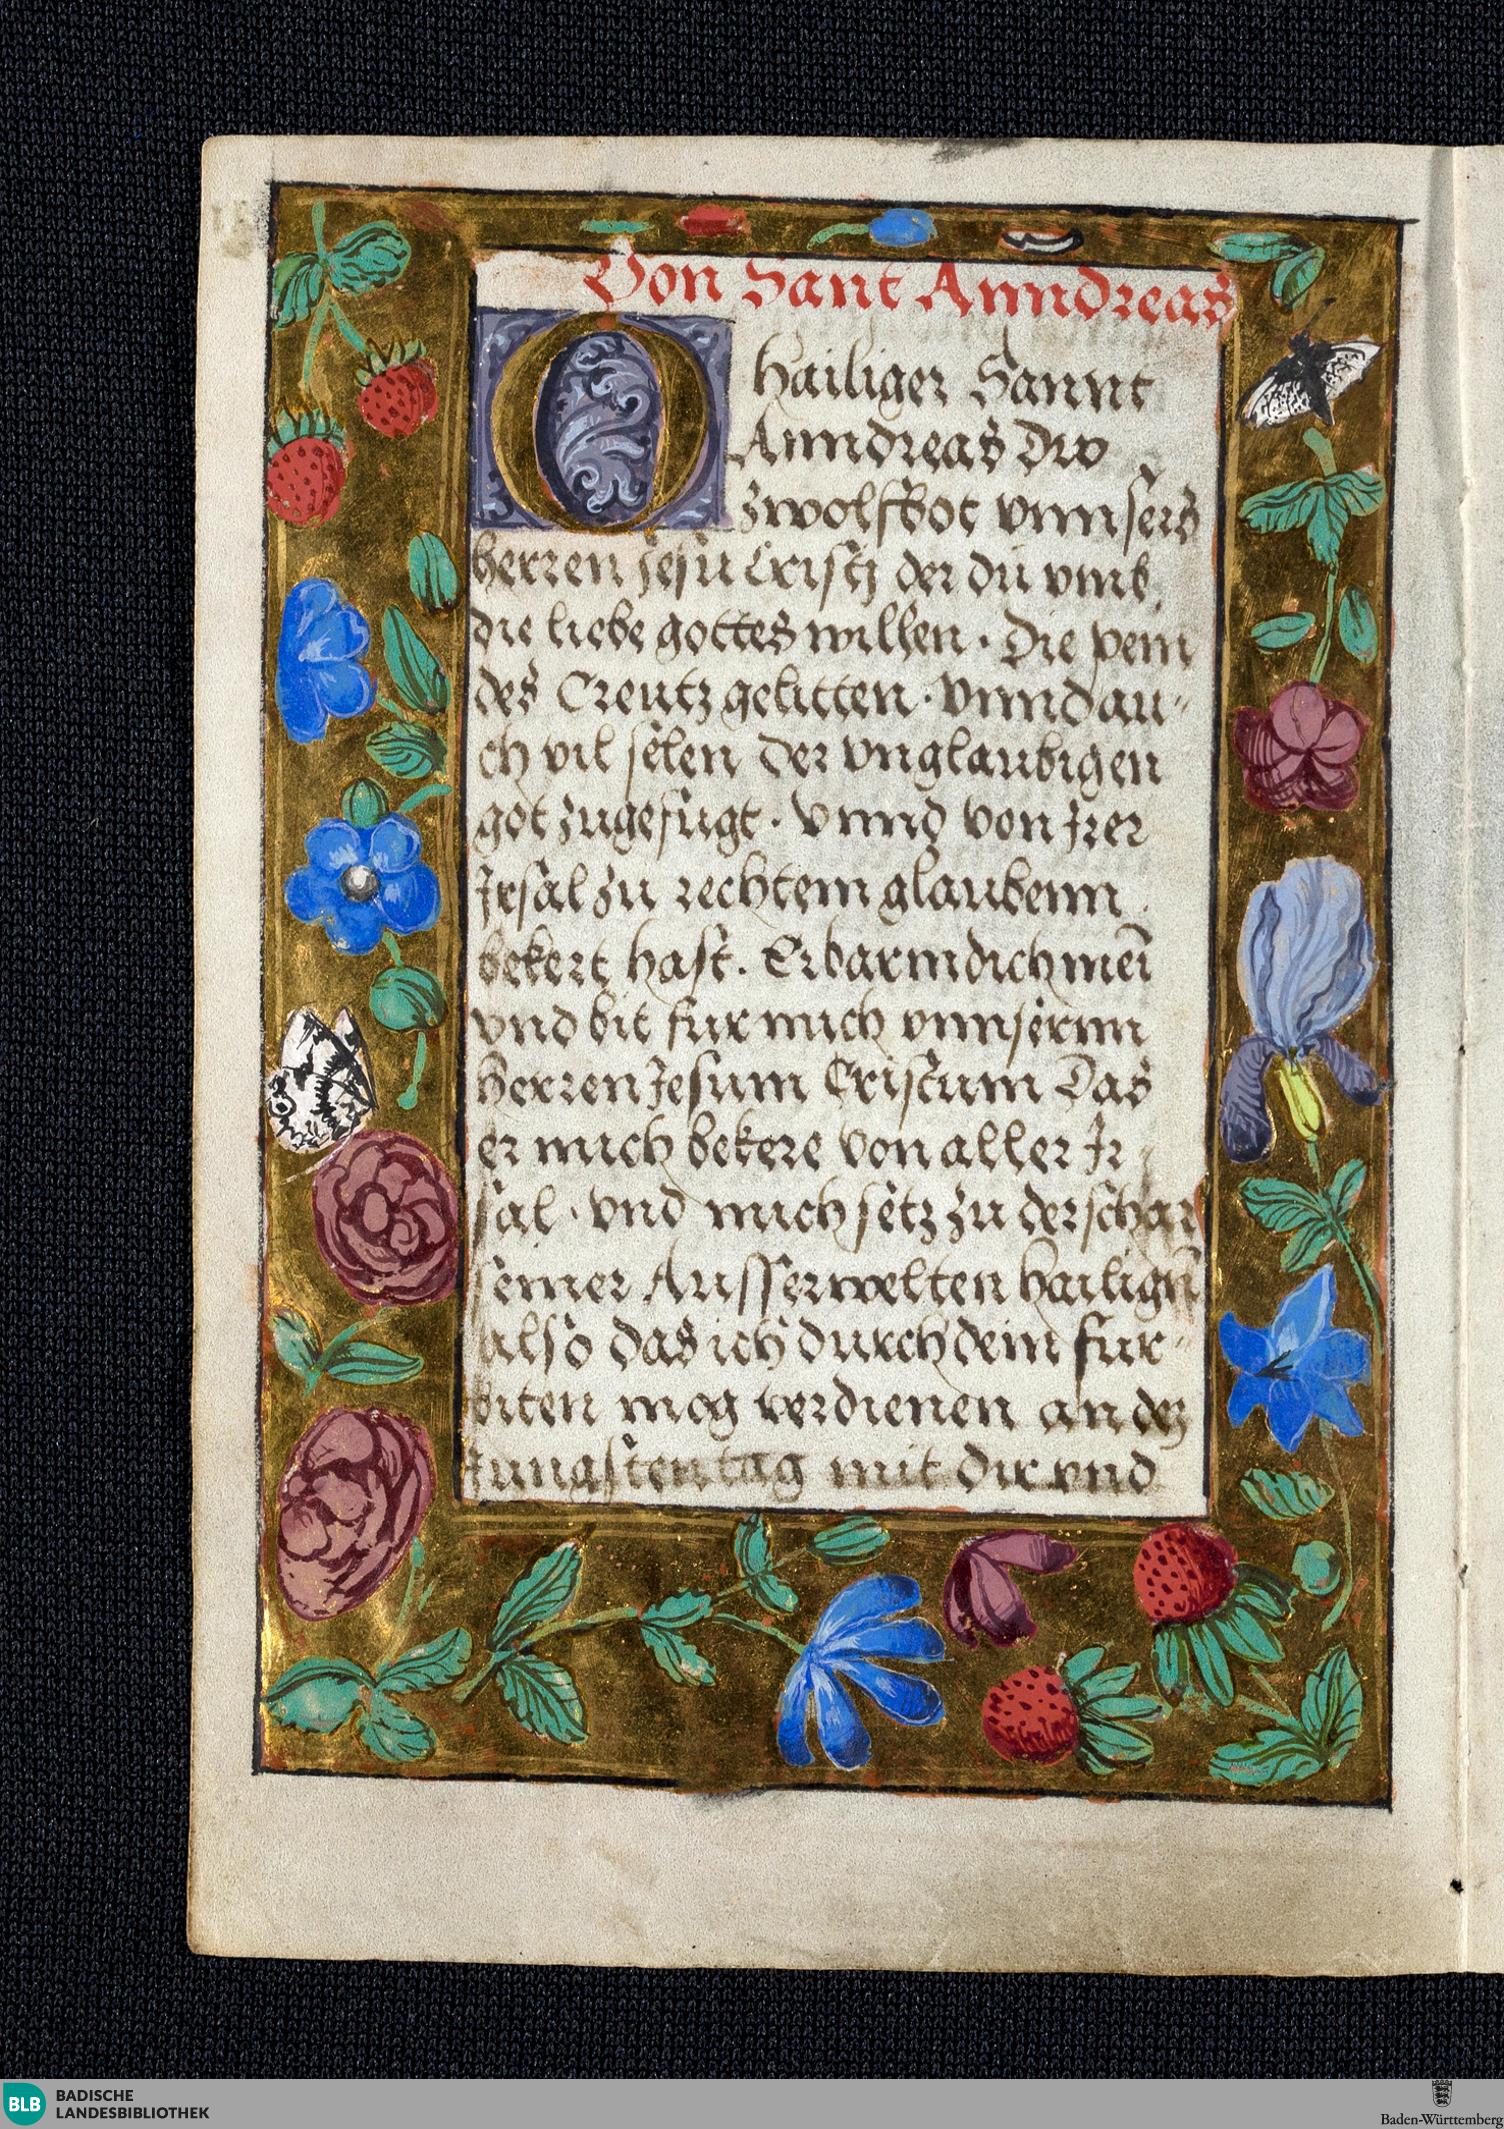 Von Sant Anndreas
O Hailiger Sannt
Anndreas Dw
zwolfbot vnnsers
herren Jesu Cristj der du vmb
die liebe gottes willen · Die pein
des Creutz gelitten · Vnnd au-
ch vil selen der vnglaubigen
got zugefugt · Vnnd von Jrer
Jrsal zu rechtem glaubenn
bekert hast. Erbarm dich mei
vnd bit fur mich vnnsernn
herren Jesum Cristum Das
er mich bekere von aller Jr
sal · vnd mich setz zu der schar
seiner Ausserwelten Hailign
also das ich durch dein fur-
biten mog verdienen an dez
Jungsten tag mit dir vnd
BLB BADISCHE
LANDESBIBLIOTHEK
Baden-Württemberg